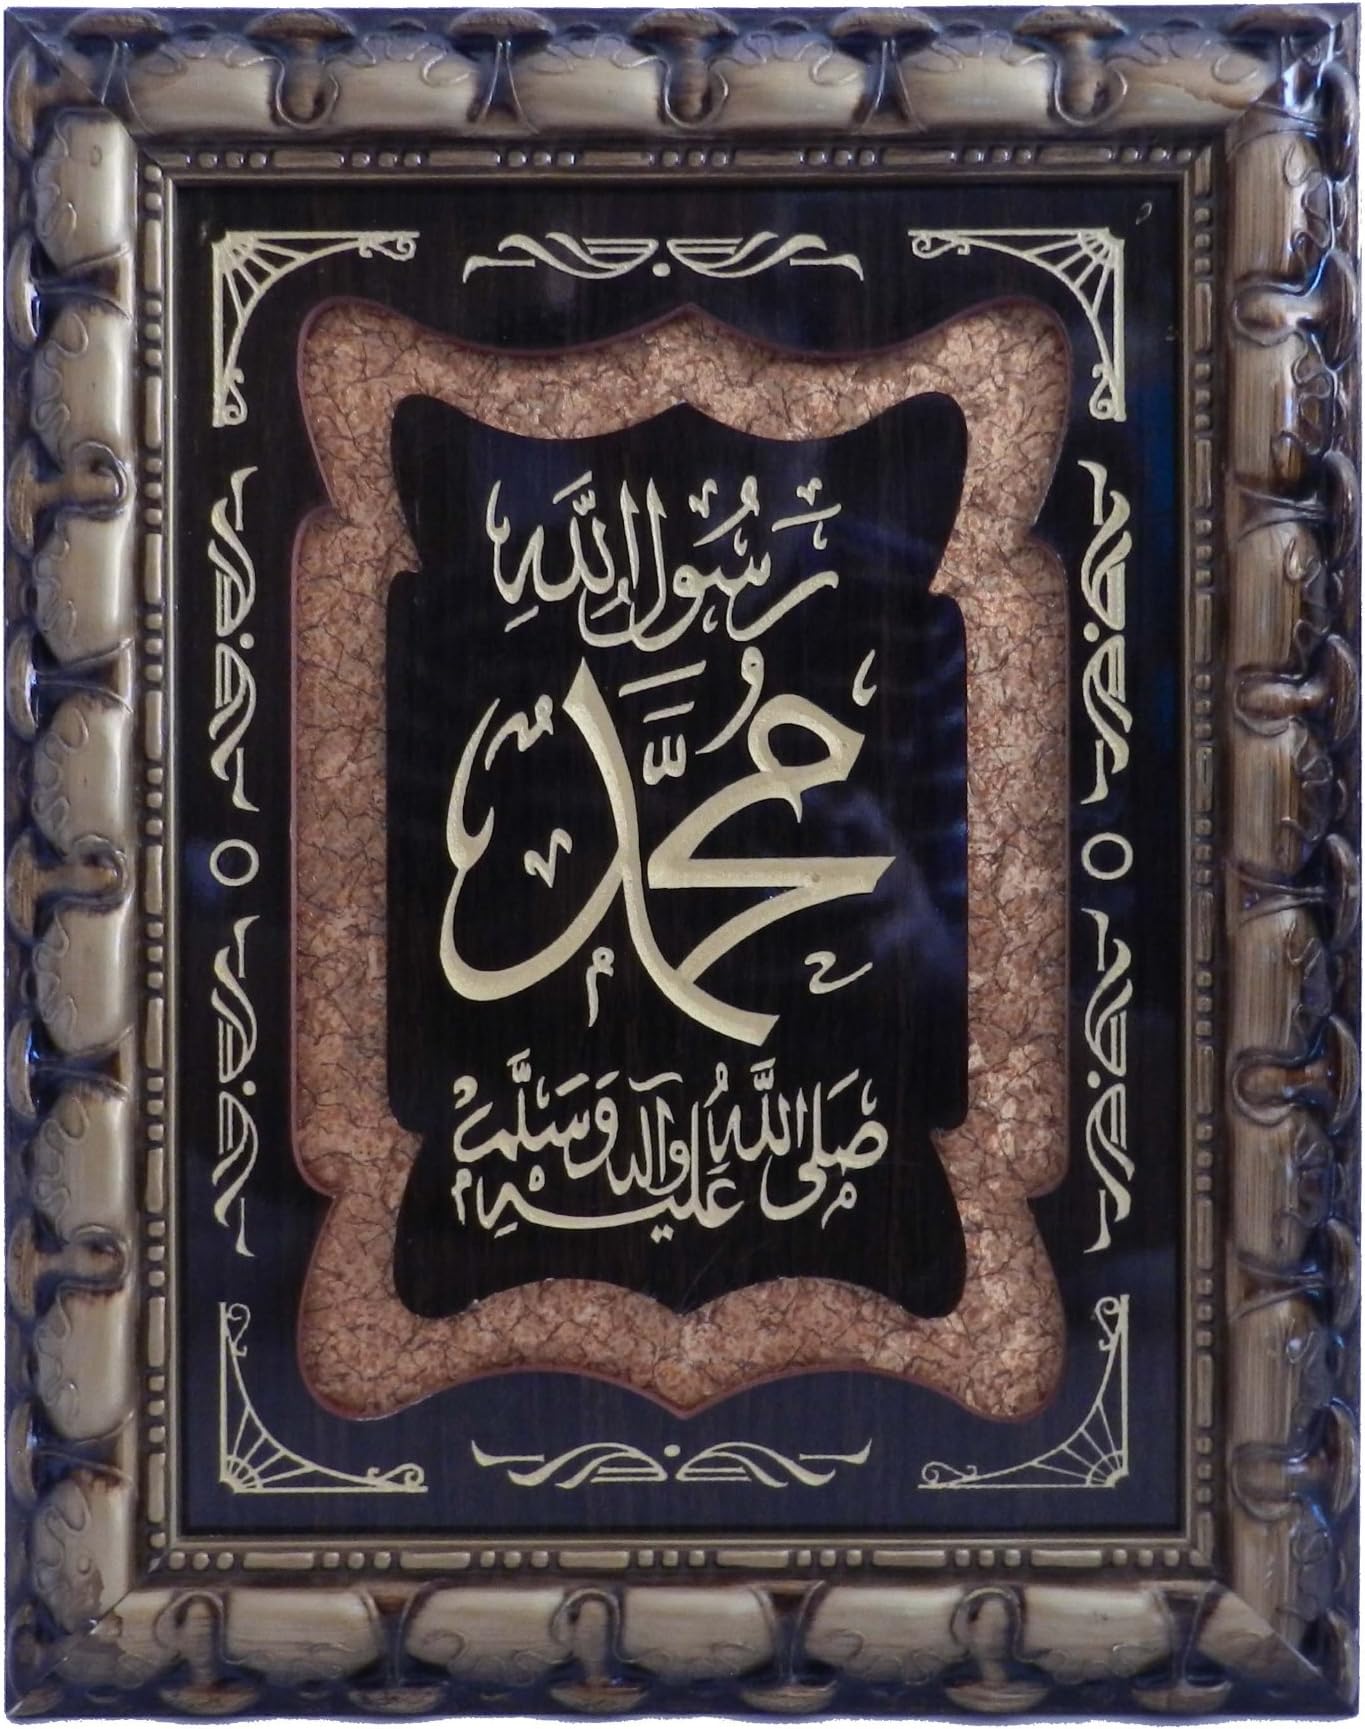 رَسُولُ اللَّهِ
مُحَمَّدٌ
صَلَى اللَّهُ عَلَيْهِ وَآلِهِ وَسَلَّمَ